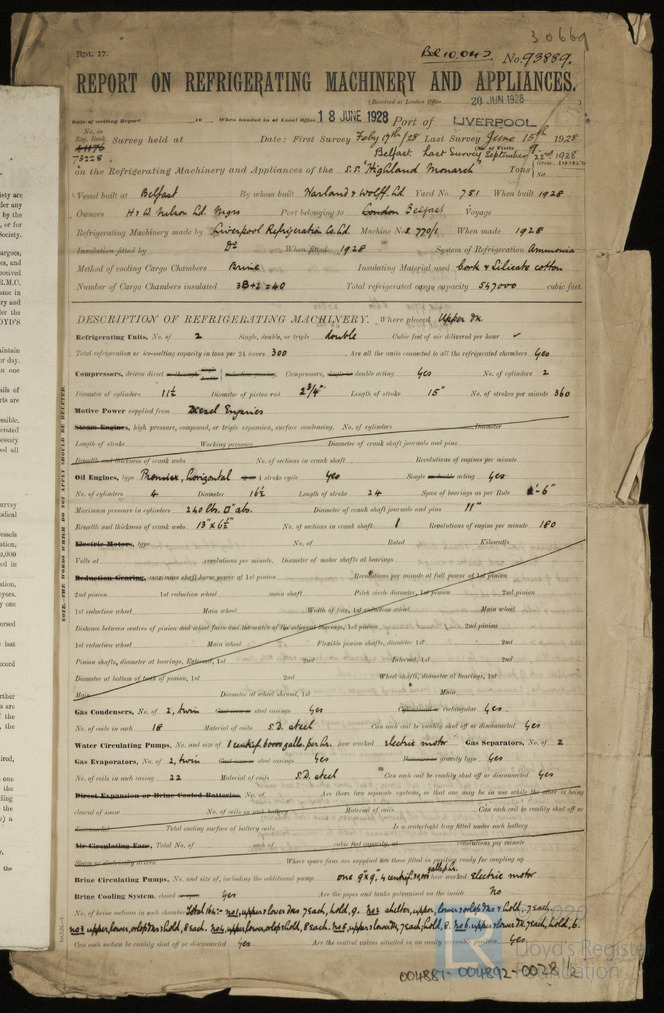 30669
Rpt. 17.
Bel 10,042. No. 93889.
REPORT ON REFRIGERATING MACHINERY AND APPLIANCES.
(Received at London Office 20 JUN 1928 )
Date of writing Report 19 When handed in at Local Office 18 JUNE 1928 Port of LIVERPOOL
No. in Reg. Book. Survey held at Date: First Survey Feby 17th/28 Last Survey June 15th 1928
73228 Belfast. Last Survey September 22nd 1928
(No. of Visits 9)
on the Refrigerating Machinery and Appliances of the S.S. "Highland Monarch" Tons
Vessel built at Belfast By whom built Harland & Wolff Ld Yard No. 751 When built 1928
Owners H & W Nelson Ld. Mgrs Port belonging to London Belfast Voyage
Refrigerating Machinery made by Liverpool Refrigeration Co Ld Machine No. S. 770/1 When made 1928
Insulation fitted by Do When fitted 1928 System of Refrigeration Ammonia
Method of cooling Cargo Chambers Brine Insulating Material used Cork & Silicate cotton
Number of Cargo Chambers insulated 38+2=40 Total refrigerated cargo capacity 547000 cubic feet.
DESCRIPTION OF REFRIGERATING MACHINERY. Where placed Upper Dk.
Refrigerating Units, No. of 2 Single, double, or triple double Cubic feet of air delivered per hour ✓
Total refrigeration or ice-melting capacity in tons per 24 hours 300 Are all the units connected to all the refrigerated chambers Yes
Compressors, driven direct or through single double reduction gearing. Compressors, single or double acting Yes No. of cylinders 2
Diameter of cylinders 11½ Diameter of piston rod 2¾" Length of stroke 15" No. of strokes per minute 360
Motive Power supplied from Diesel Engines
Steam Engines, high pressure, compound, or triple expansion, surface condensing. No. of cylinders Diameter
Length of stroke Working pressure Diameter of crank shaft journals and pins
Breadth and thickness of crank webs No. of sections in crank shaft Revolutions of engines per minute
Oil Engines, type Premier, Horizontal or 4 stroke cycle Yes Single or double acting Yes
No. of cylinders 4 Diameter 16½ Length of stroke 24 Span of bearings as per Rule -6"
Maximum pressure in cylinders 240 lbs. □" abs. Diameter of crank shaft journals and pins 11"
Breadth and thickness of crank webs 13" x 6½" No. of sections in crank shaft 1 Revolutions of engine per minute 180
Electric Motors, type No. of Rated Kilowatts
Volts at revolutions per minute. Diameter of motor shafts at bearings
Reduction Gearing, maximum shaft horse power at 1st pinion Revolutions per minute at full power at 1st pinion
2nd pinion 1st reduction wheel main shaft Pitch circle diameter, 1st pinion 2nd pinion
1st reduction wheel Main wheel Width of face, 1st reduction wheel Main wheel
Distance between centres of pinion and wheel faces and the centre of the adjacent bearings, 1st pinion 2nd pinion
1st reduction wheel Main wheel Flexible pinion shafts, diameter 1st 2nd
Pinion shafts, diameter at bearings, External, 1st 2nd Internal, 1st 2nd
Diameter at bottom of teeth of pinion, 1st 2nd Wheel shafts, diameter at bearings, 1st
Main Diameter at wheel shroud, 1st Main
Gas Condensers, No. of 2, twin Cast iron or steel casings Yes Cylindrical or rectangular Yes
No. of coils in each 18 Material of coils S.D. steel Can each coil be readily shut off or disconnected Yes
Water Circulating Pumps, No. and size of 1 centrif. 60000 galls. per hr. how worked electric motor Gas Separators, No. of 2
Gas Evaporators, No. of 2, twin Cast iron or steel casings Yes Pressure or gravity type Yes
No. of coils in each casing 22 Material of coils S.D. steel Can each coil be readily shut off or disconnected Yes
Direct Expansion or Brine Cooled Batteries, No. of Are there two separate systems, so that one may be in use while the other is being
cleared of snow No. of coils in each battery Material of coils Can each coil be readily shut off or
disconnected Total cooling surface of battery coils Is a watertight tray fitted under each battery
Air Circulating Fans, Total No. of each of cubic feet capacity, at revolutions per minute
Steam or electrically driven Where spare fans are supplied are these fitted in position ready for coupling up
Brine Circulating Pumps, No. and size of, including the additional pump one 9"x9", 4 centrif. galls hr. how worked Electric motor
Brine Cooling System, closed or open Yes Are the pipes and tanks galvanised on the inside No
No. of brine sections in each chamber Total 164:- No1, upper & lower dks 7 each, hold, 9. No2 shelter, upper, lower & orlop dks & hold, 7 each.
No3 upper, lower, orlop dks & hold, 8 each. No4, upper, lower, orlop & hold, 8 each. No5, upper & lower dk, 7 each, hold, 8. No6, upper & lower dk, 7 each, hold, 6.
Can each section be readily shut off or disconnected Yes Are the control valves situated in an easily accessible position Yes
NOTE.—THE WORDS WHICH DO NOT APPLY SHOULD BE DELETED.
Lloyd's Register
Foundation
004881-004892-0028 1/2